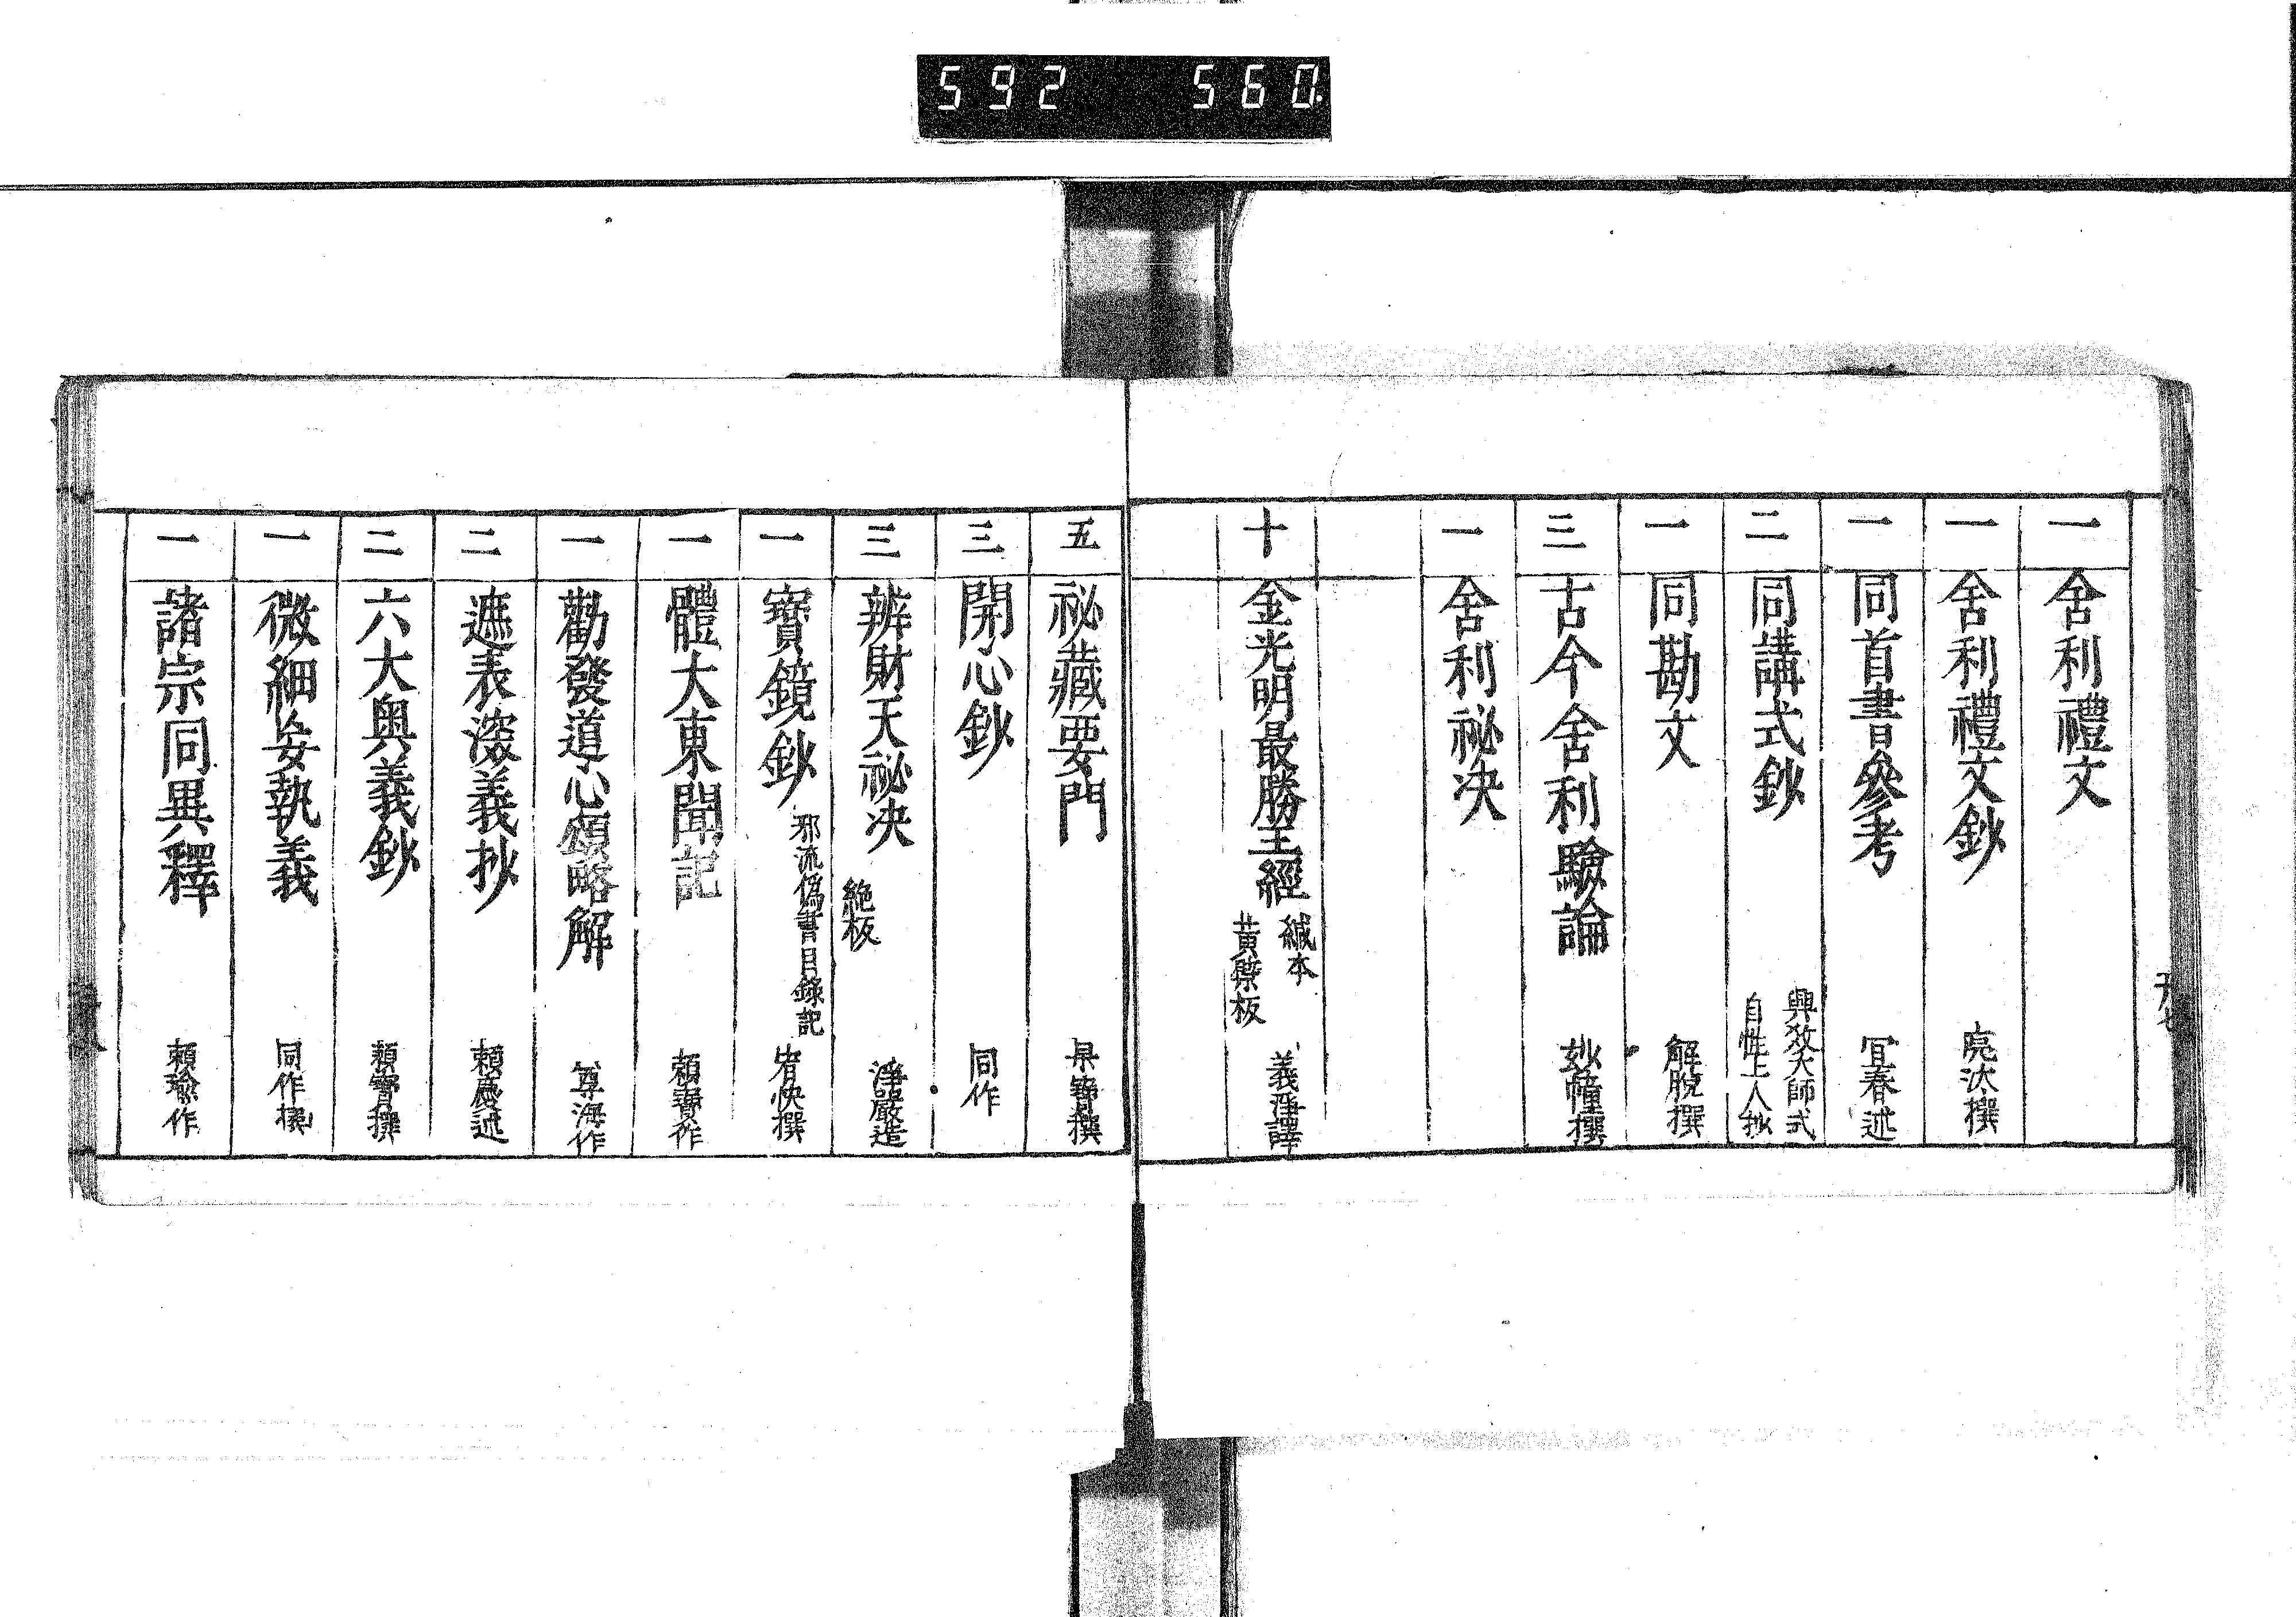 592 560.
一 舍利禮文
一 舍利禮文鈔 亮汰撰
一 同首書參考 冝春述
二 同講式鈔 興教大師式 自性上人抄
一 同勘文 解脫撰
三 古今舍利驗論 妙幢撰
一 舍利祕决
十 金光明最勝王經 縅本 黃檗板 義淨譯
五 祕藏要門 杲寶撰
三 開心鈔 同作
三 辨財天祕决 絶板 淨嚴造
一 寶鏡鈔 邪流僞書目錄記 宥快撰
一 體大東聞記 頼寶作
一 勸發道心頌略解 尊海作
二 遮表義抄 頼慶述
二 六大奥義鈔 頼寶撰
一 微細妄執義 同作撰
一 諸宗同異釋 頼瑜作